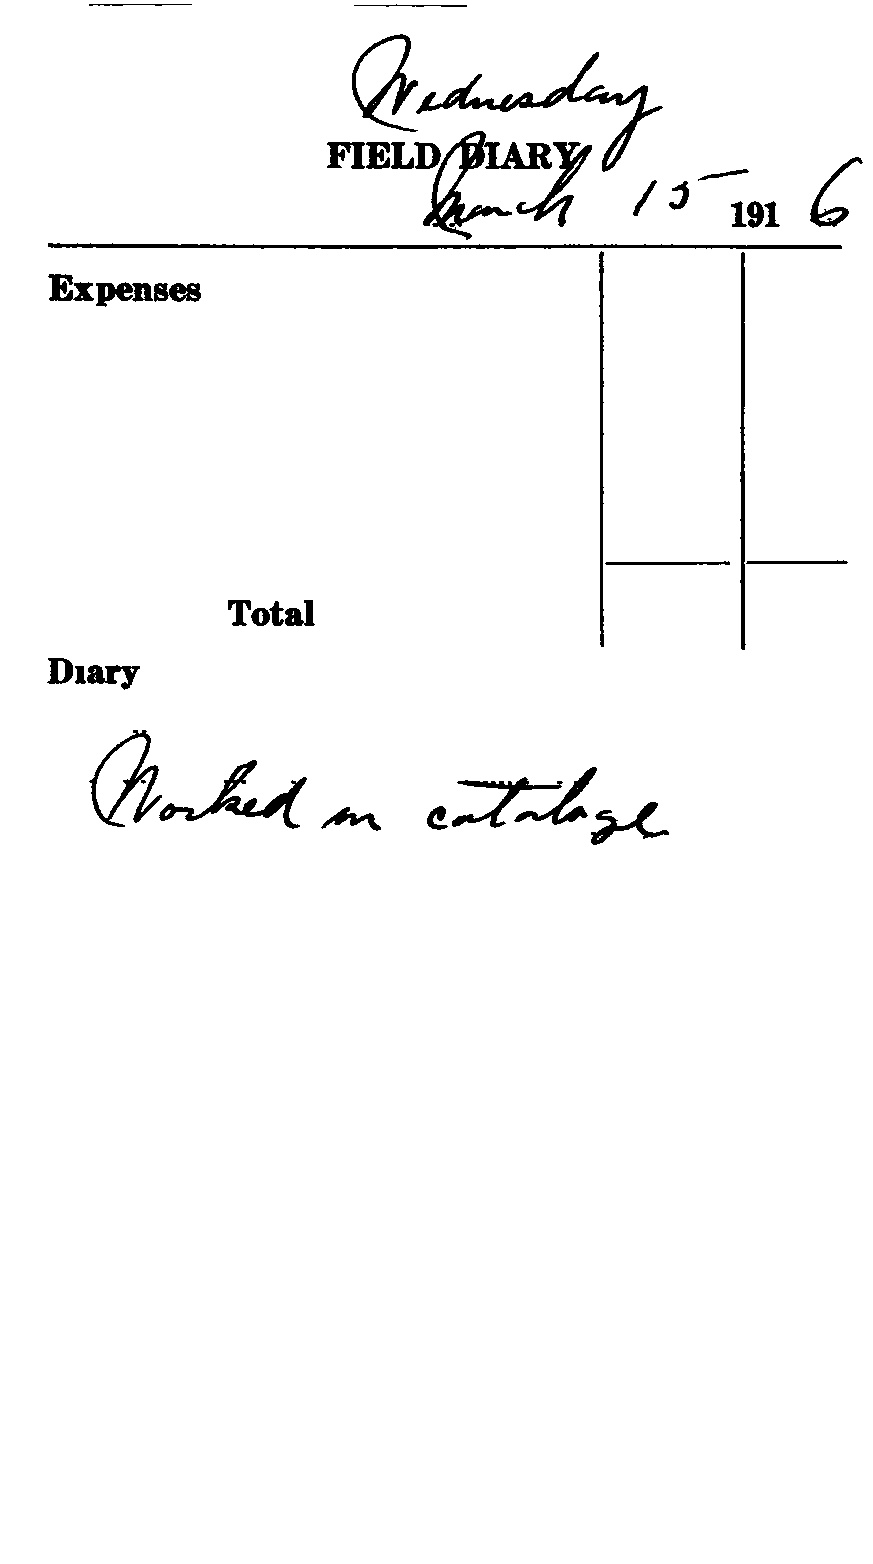 Wednesday
FIELD DIARY
March 15 1916
Expenses
Total
Diary
Worked on cataloge